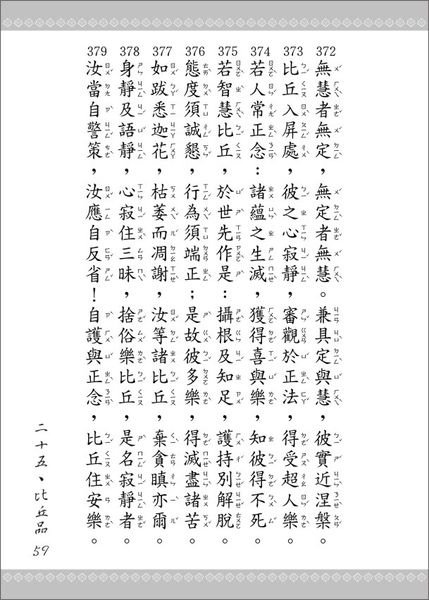 372 無慧者無定，無定者無慧。兼具定與慧，彼實近涅槃。
373 比丘入屏處，彼之心寂靜，審觀於正法，得受超人樂。
374 若人常正念：諸蘊之生滅，獲得喜與樂，知彼得不死。
375 若智慧比丘，於世先作是：攝根及知足，護持別解脫。
376 態度須誠懇，行為須端正；是故彼多樂，得滅盡諸苦。
377 如跋悉迦花，枯萎而凋謝，汝等諸比丘，棄貪瞋亦爾。
378 身靜及語靜，心寂住三昧，捨俗樂比丘，是名寂靜者。
379 汝當自警策，汝應自反省！自護與正念，比丘住安樂。
二十五、比丘品
59